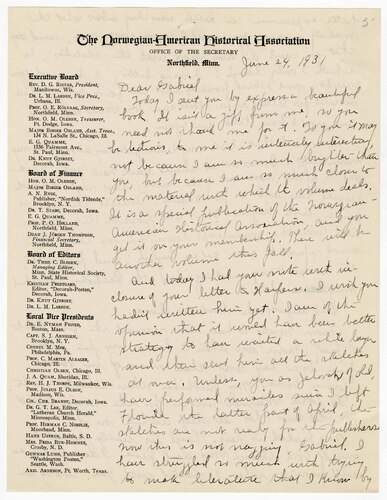 5
The Norwegian-American Historical Association
OFFICE OF THE SECRETARY
Northfield, Minn.
June 24, 1931
Executive Board
REV. D. G. RISTAD, President,
Manitowoc, Wis.
DR. L. M. LARSON, Vice Pres.,
Urbana, Ill.
PROF. O. E. RÖLVAAG, Secretary,
Northfield, Minn.
HON. O. M. OLESON, Treasurer,
Ft. Dodge, Iowa.
MAJOR BIRGER OSLAND, Asst. Treas.,
134 N. LaSalle St., Chicago, Ill.
E. G. QUAMME,
Fairmont Ave.,
St. Paul, Minn.
DR. KNUT GJERSET,
Decorah, Iowa.
Board of Finance
HON. O. M. OLESON,
MAJOR BIRGER OSLAND,
A. N. RYGG,
Publisher, "Nordisk Tidende,"
Brooklyn, N. Y.
DR. T. STABO, Decorah, Iowa.
E. G. QUAMME,
St. Paul, Minn.
PROF. P. O. HOLLAND,
Northfield, Minn.
DEAN J. JÖRGEN THOMPSON,
Financial Secretary,
Northfield, Minn.
Board of Editors
DR. THEO. C. BLEGEN,
Managing Editor,
Minn. State Historical Society,
St. Paul, Minn.
KRISTIAN PRESTGARD,
Editor, "Decorah-Posten,"
Decorah, Iowa.
DR. KNUT GJERSET
DR. L. M. LARSON
Local Vice Presidents
DR. E. NYMAN FIGVED,
Boston, Mass.
CAPT. S. J. ARNESEN,
Brooklyn, N. Y.
CONSUL M. MOE,
Philadelphia, Pa.
PROF. C. MARTIN ALSAGER,
Chicago, Ill.
CHRISTIAN OLSEN, Chicago, Ill.
J. A. QUAM, Sheridan, Ill.
REV. H. J. THORPE, Milwaukee, Wis.
PROF. JULIUS E. OLSON,
Madison, Wis.
CH. CHR. BRANDT, Decorah, Iowa.
DR. G. T. LEE, Editor,
"Lutheran Church Herald,"
Minneapolis, Minn.
PROF. HERMAN C. NORDLIE,
Moorhead, Minn.
HANS USTRUD, Baltic, S. D.
Crosby, N. D.
GUNNAR LUND, Publisher
"Washington Posten,"
Seattle, Wash.
AXEL ARNESON, Ft. Worth, Texas.
Dear Gabriel
Today I sent you by express a beautiful
book. It isn't a gift from me, so you
need not thank me for it. To you it may
be tedious, to me it is intensely interesting,
not because I am so much brighter than
you but because I am so much closer to
the material with which the volume deals.
It is a special publication of the Norwegian-
American Historical Association and you
get it on your membership. There will be
another volume this fall.
And today I had your note with in-
closure of your letter to Harpers. I wish you
hadn't written him yet. I am of the
opinion that it would have been better
strategy to have waited a while later
and then him all the sketches
at once. Unless you as of old,
have performed miracles since I left
Florida the latter part of April the
sketches are not ready for the publishers
now this is not nagging, Gabriel. I
have struggled so much with trying
to make literature that I know by